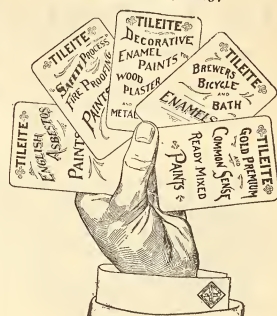 TILEITE
ENGLISH
ASBESTOS
PAINTS
TILEITE
SAFETY PROCESS
FIRE PROOFING
PAINTS
TILEITE
DECORATIVE
ENAMEL
PAINTS FOR
WOOD
PLASTER
AND
METAL
TILEITE
BREWERS
BICYCLE
AND
BATH
ENAMELS
TILEITE
GOLD PREMIUM
AND
COMMON SENSE
READY MIXED
PAINTS